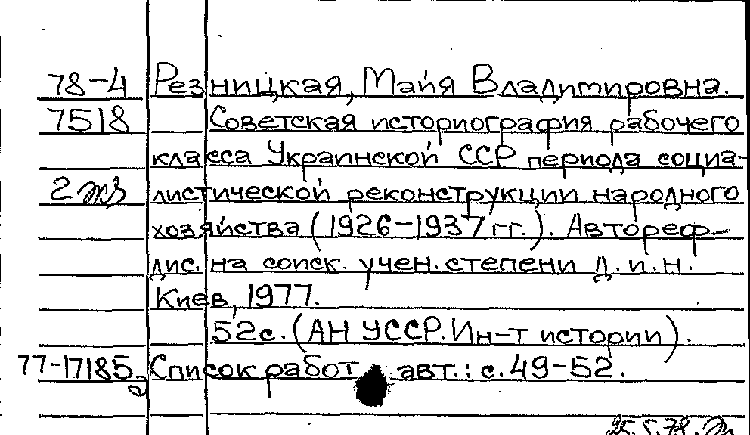 78-4 Резницкая, Майя Владимировна.
7518 Советская историография рабочего
класса Украинской ССР периода социа-
2 экз листической реконструкции народного
хозяйства (1926-1937 гг.). Автореф.
дис. на соиск. учен. степени д. и. н.
Киев, 1977.
52с. (АН УССР. Ин-т истории).
77-17185 Список работ авт.: с. 49-52.